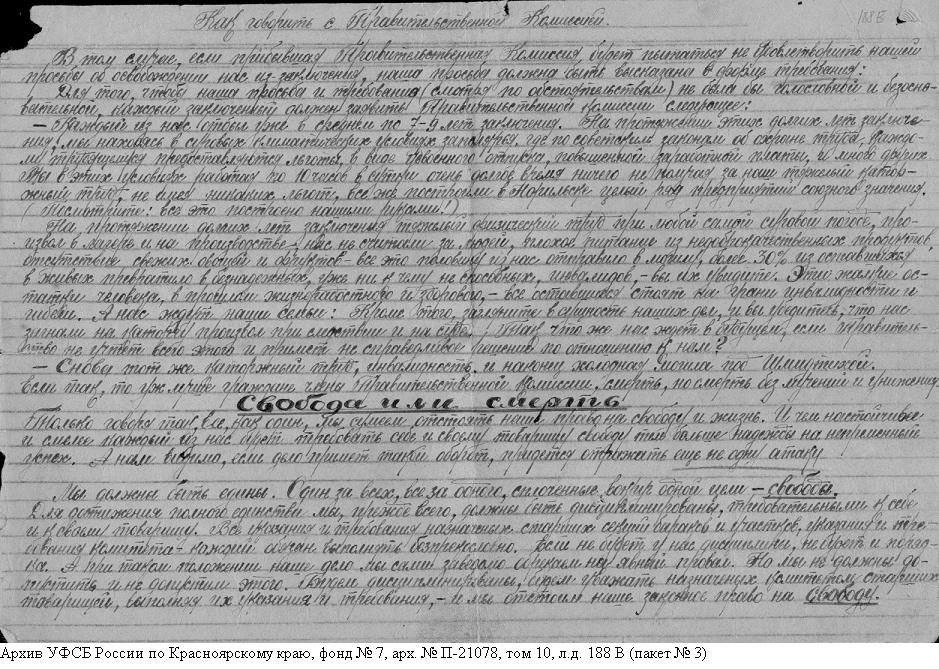 Как говорить с Правительственной Комиссией.
188 В
В том случае, если прибывшая Правительственная Комиссия будет пытаться не удовлетворить нашей
просьбы об освобождении нас из заключения, наша просьба должна быть высказана в форме требования:
Для того, чтобы наша просьба и требования (смотря по обстоятельствам) не была бы голословной и безосно-
вательной, каждый заключенный должен заявить Правительственной комиссии следующее:
— Каждый из нас отбыл уже в среднем по 7-9 лет заключения. На протяжении этих долгих лет заключе-
ния, мы находясь в суровых климатических условиях заполярья, где по советским законам об охране труда, каждо-
му трудящемуся предоставляются льготы, в виде отпуска, повышенной заработной платы, и много других
Мы в этих условиях работая по 10 часов в сутки очень долгое время ничего не получая за наш тяжелый катор-
жный труд, не имея никаких льгот, все же построили в Норильске целый ряд предприятий союзного значения.
(Посмотрите: все это построено нашими руками!)
На протяжении долгих лет заключения тяжелый физический труд при любой самой суровой погоде, про-
извол в лагере и на производстве, нас не считали за людей, плохое питание из недоброкачественных продуктов,
отсутствие свежих овощей и фруктов - все это половину из нас отправило в могилу, более 30% из оставшихся
в живых превратило в безнадежных, уже ни к чему не способных, инвалидов, - вы их увидите. Эти жалкие ос-
татки человека, в прошлом жизнерадостного и здорового, - все оставшиеся стоят на грани инвалидности и
гибели. А нас ждут наши семьи! Кроме этого, загляните в сущность наших дел, и вы убедитесь, что нас
загнали на каторгу произвол при следствии и на суде. Так что же нас ждет в будущем, если Правитель-
ство не учтет всего этого и примет не справедливое решение по отношению к нам?
— Снова тот же каторжный труд, инвалидность, и наконец холодная могила под Шмидтихой.
Если так, то уж лучше граждане члены Правительственной комиссии, смерть, но смерть без мучений и унижения.
Свобода или смерть
Только говоря так, все, как один, мы сумеем отстоять наше право на свободу и жизнь. И чем настойчивее
и смелее каждый из нас будет требовать себе и своему товарищу свободу тем больше надежды на непременный
успех. А нам видимо, если дело примет такой оборот, придется отражать еще не одну атаку!
Мы должны быть едины. Один за всех, все за одного, сплоченные вокруг одной цели - свободы.
Для достижения полного единства мы, прежде всего, должны быть дисциплинированы, требовательными к себе
и к своему товарищу. Все указания и требования назначенных старших секций бараков и участков, указания и тре-
бования комитета - каждый обязан выполнять безпрекословно. Если не будет у нас дисциплины, не будет и поряд-
ка. А при таком положении наше дело мы сами заведомо обрекаем на явный провал. Но мы не должны до-
пустить и не допустим этого. Будем дисциплинированы, будем уважать назначенных комитетом старших
товарищей, выполняя их указания и требования, - и мы отстоим наше законное право на свободу.
Архив УФСБ России по Красноярскому краю, фонд № 7, арх. № П-21078, том 10, л.д. 188 В (пакет № 3)